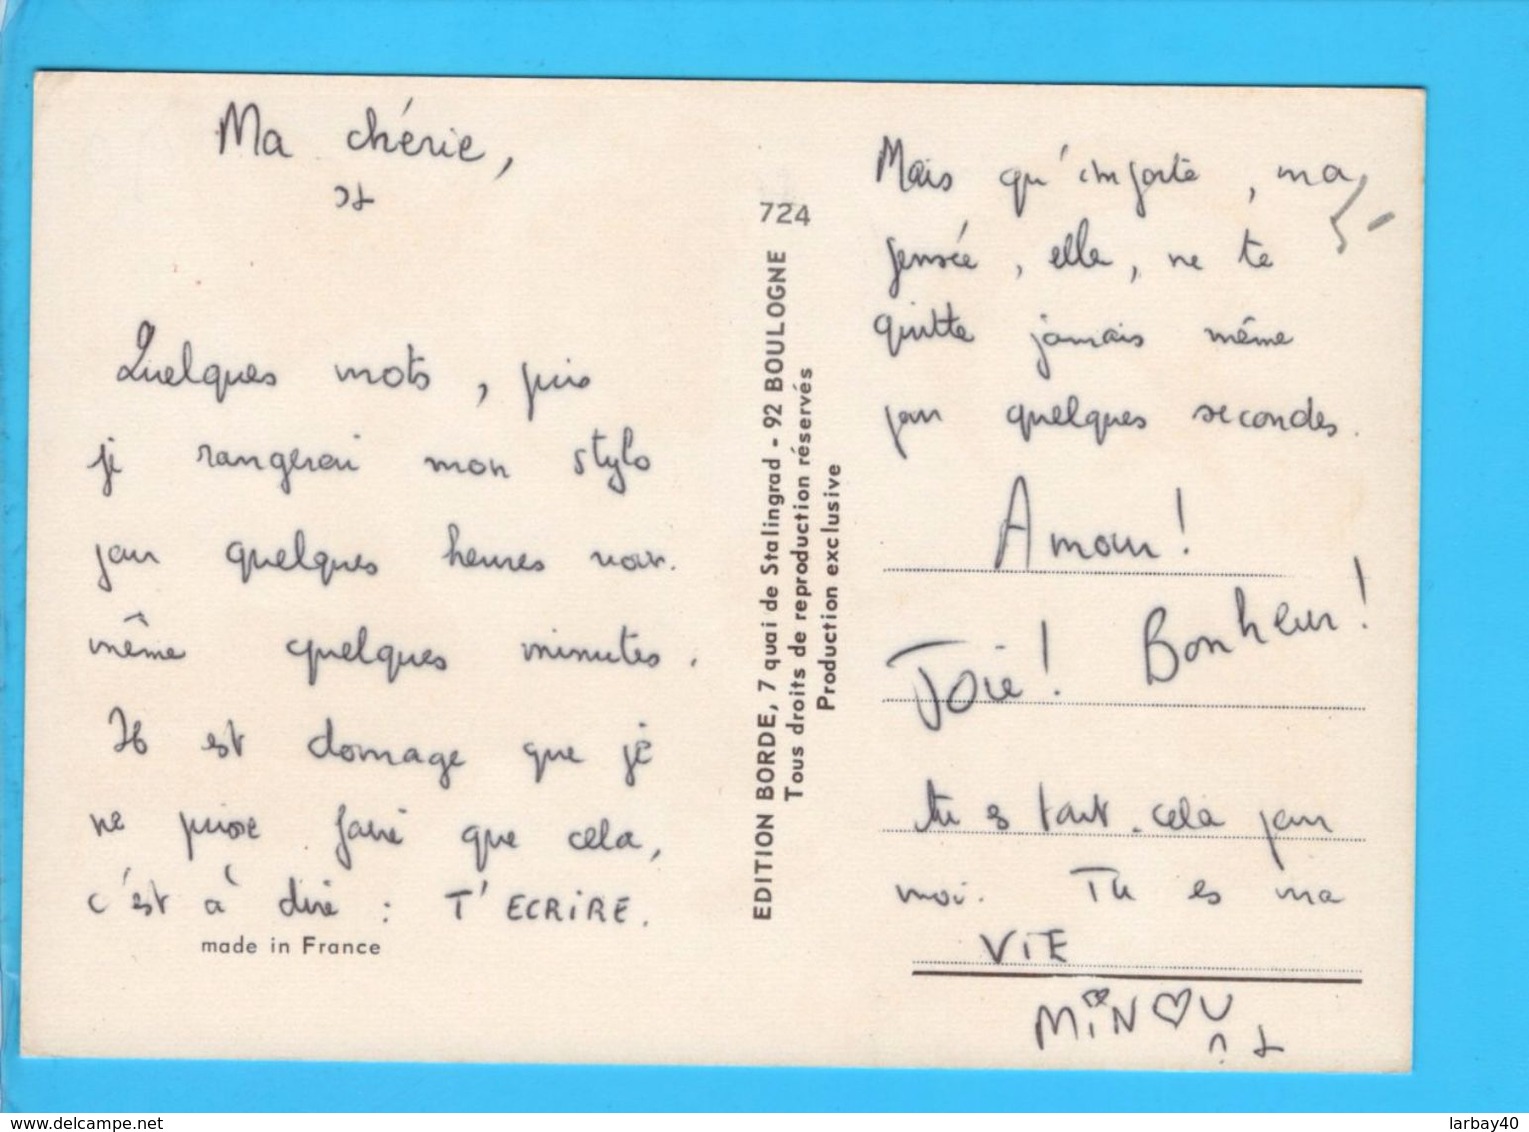 Ma chérie,
Quelques mots, puis
je rangerai mon stylo
pour quelques heures voir.
même quelques minutes.
Il est domage que je
ne puisse faire que cela,
c'est à dire : T'ECRiRE.
made in France
724
EDITION BORDE, 7 quai de Stalingrad - 92 BOULOGNE
Tous droits de reproduction réservés
Production exclusive
Mais qu'importe, ma
pensée, elle, ne te
quitte jamais même
pour quelques secondes.
Amour!
Joie! Bonheur!
tu es tout cela pour
moi. Tu es ma
ViE
MiN♡U
www.delcampe.net
larbay40